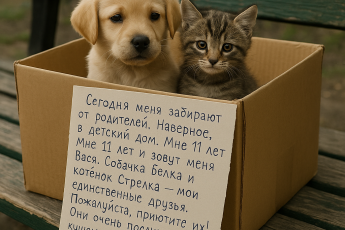 Сегодня меня забирают
от родителей. Наверное,
в детский дом. Мне 11 лет
Мне 11 лет и зовут меня
Вася. Собачка Белка и
котёнок Стрелка — мои
единственные друзья.
Пожалуйста, приютите их!
Они очень